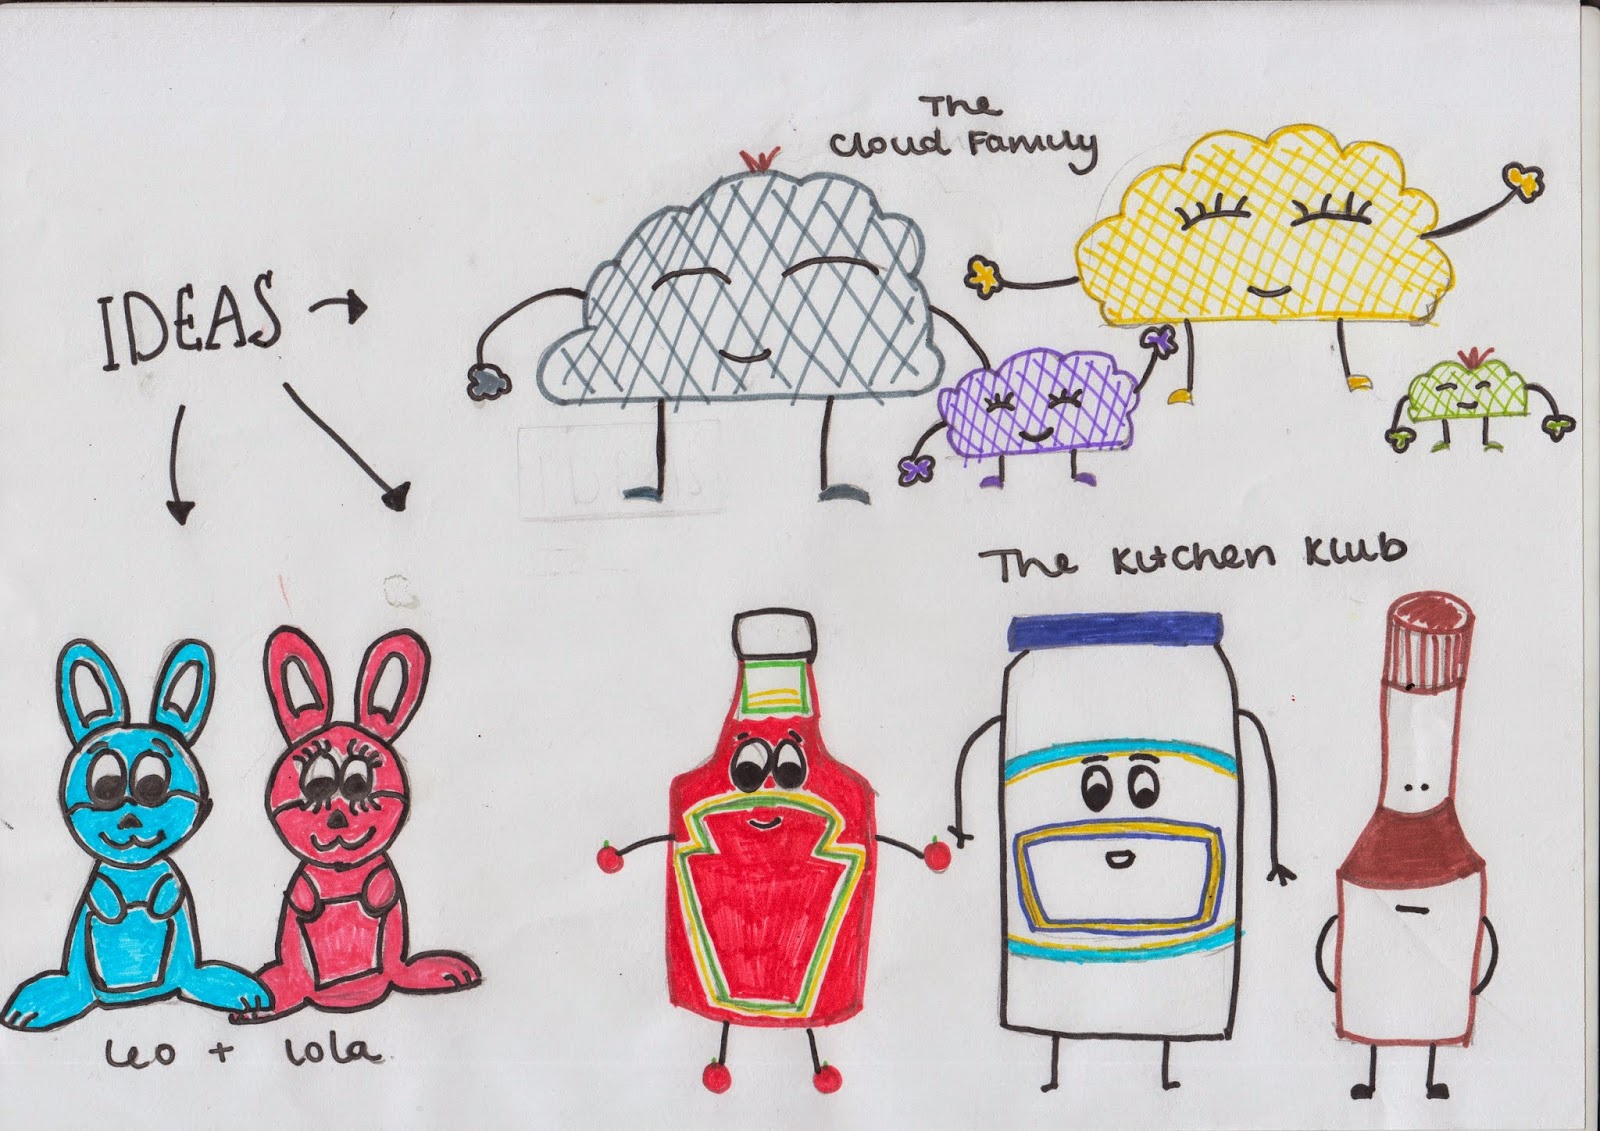 The
Cloud Family
IDEAS
The Kitchen Klub
Leo + Lola